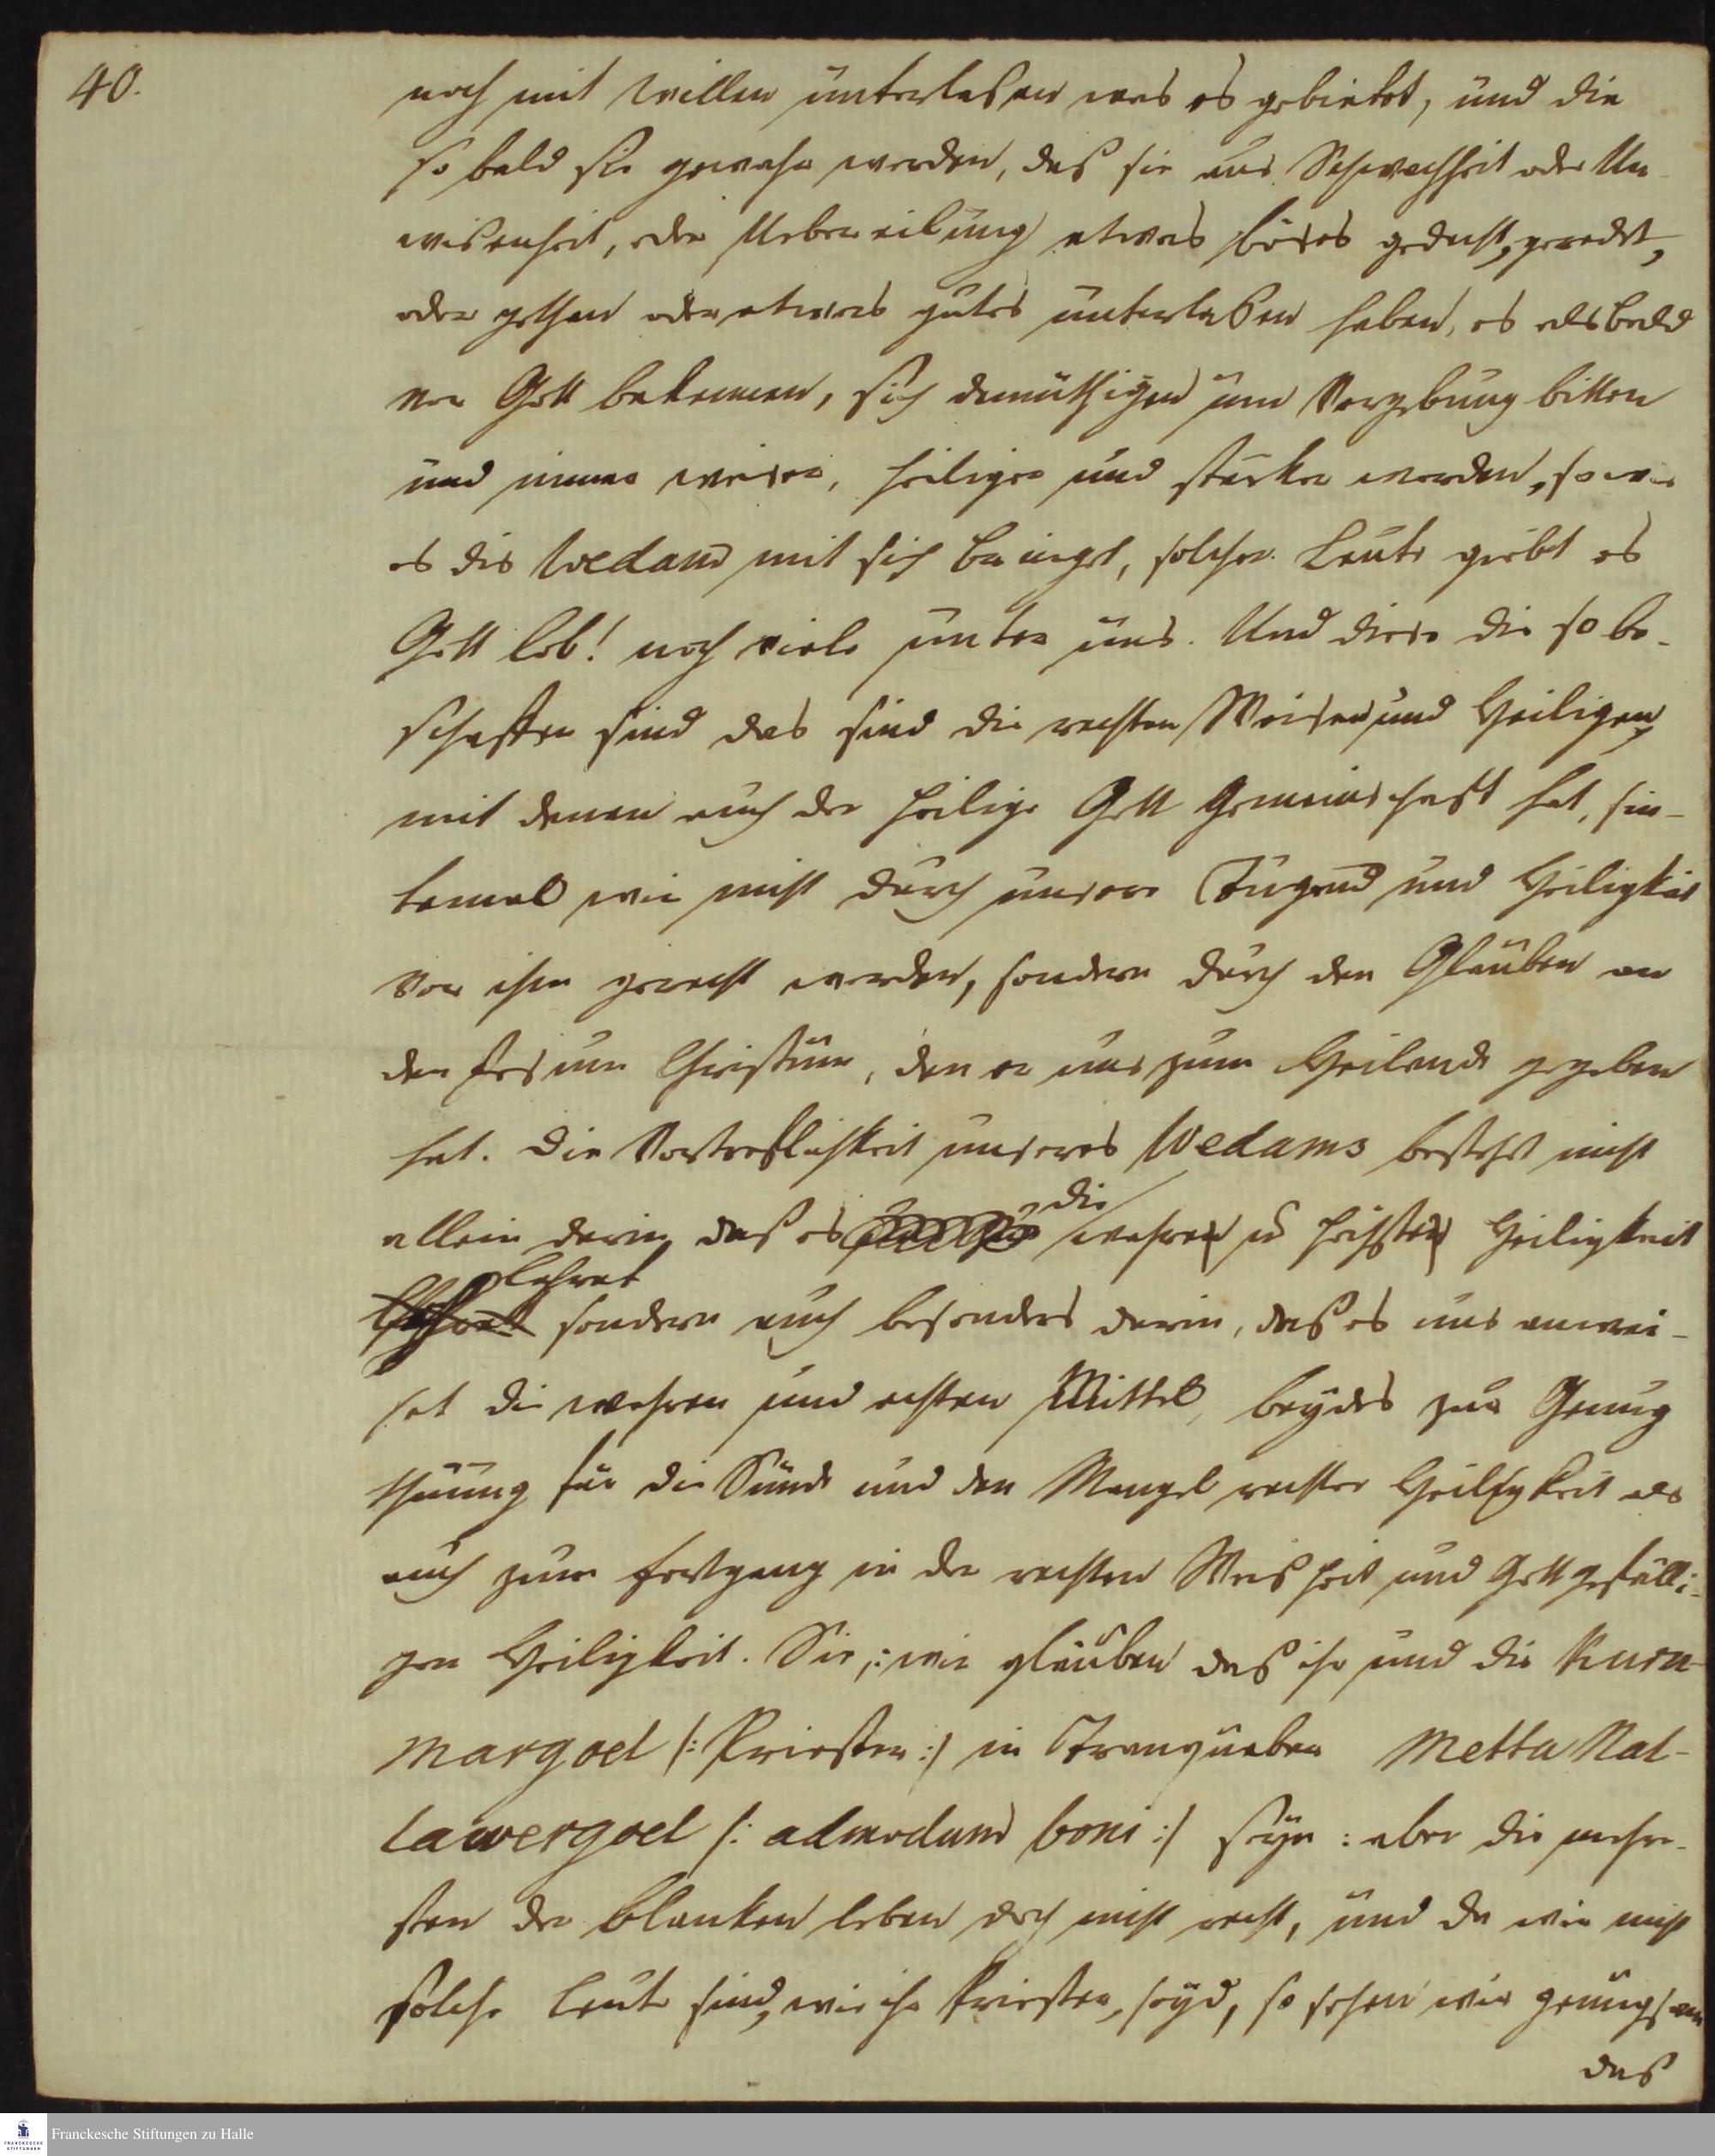 40.
noch mit Willen unterlaßen was es gebietet, und die
so bald sie gewahr werden, daß sie aus Schwachheit oder Un-
wißenheit, oder Uebereilung etwas böses gedacht, geredet,
oder gethan oder etwas gutes unterlaßen haben, es alsbald
vor Gott bekennen, sich demüthigen um Vergebung bitten
und immer weiser, heiliger und stärker werden, so wie
es die Wedam mit sich bringet, solcher Leute giebt es
Gott lob! noch viele unter uns. Und diese die so be-
schaffen sind das sind die rechten Weisen und Heiligen,
mit denen auch der heilige Gott Gemeinschaft hat, sin-
temal wir nicht durch unsere Tugend und Heiligkeit
vor ihm gerecht werden, sondern durch den Glauben an
den Jesum Christum, den er uns zum Heilande gegeben
hat. Die Vortreflichkeit unseres Wedams bestehet nicht
allein darin, daß es die wahre u höchste Heiligkeit
lehret sondern auch besonders darin, daß es uns anwei-
set die wahren und rechten Mittel, beydes zur Genug
thuung für die Sünde und den Mangel rechter Heiligkeit als
auch zum Fortgang in der rechten Weisheit und Gott gefälli-
gen Heiligkeit. Sie: wir glauben daß ihr und die Kuru-
margoel (: Priester :) in Tranquebar Metta Nal-
lawergoel (: admodum boni :) seyn: aber die mehre-
sten der Blanken leben doch nicht recht, und da wir nicht
solche Leute sind, wie ihr Priester, seyd, so sehen wir genugsam
daß
Franckesche Stiftungen zu Halle